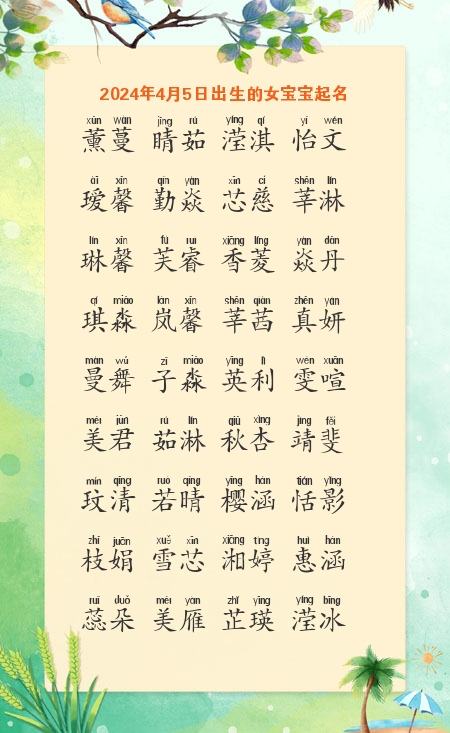 2024年4月5日出生的女宝宝起名
xūn wàn jīng rú yíng qí yí wén
薰蔓 晴茹 滢淇 怡文
ài xīn qín yàn xīn cí shēn lín
瑷馨 勤焱 芯慈 莘淋
lín xīn fú ruì xiāng líng yàn dān
琳馨 芙睿 香菱 焱丹
qí miǎo lán xīn shēn qiàn zhēn yán
琪淼 岚馨 莘茜 真妍
màn wǔ zǐ miǎo yīng lì wén xuān
曼舞 子淼 英利 雯喧
měi jūn rú lín qiū xìng jìng fěi
美君 茹淋 秋杏 靖斐
mín qīng ruò qíng yīng hán tián yǐng
玟清 若晴 樱涵 恬影
zhī juān xuě xīn xiāng tíng huì hán
枝娟 雪芯 湘婷 惠涵
ruǐ duǒ měi yàn zhǐ yīng yíng bīng
蕊朵 美雁 芷瑛 滢冰